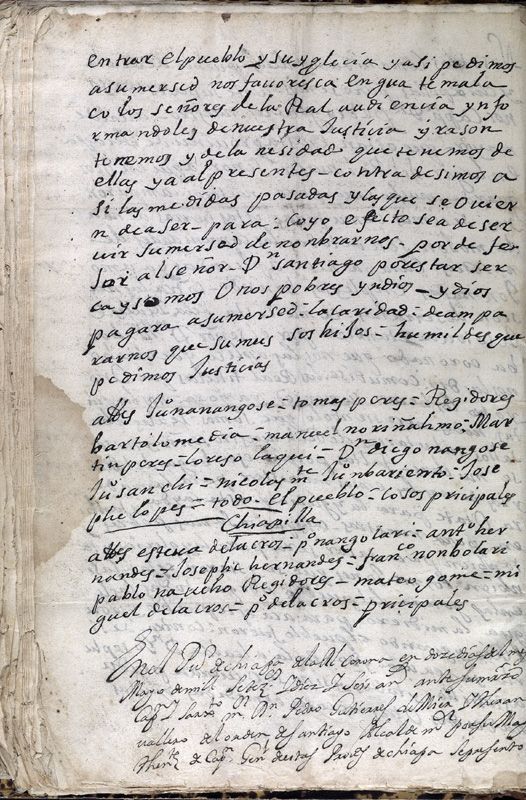 entrar el pueblo y su yglecia y asi pedimos
a sumersed nos favoresca en guatemala
co los señores de la Real audiencia ynfo
rmandoles de nuestra Justicia y rason
tenemos y de la nesidad que tenemos de
ellas ya al presentes - contradesimos a
si las medidas pasadas y las que se o vier
n de aser - para - coyo efecto sea de ser
uir sumersed de nonbrarnos - por de fe
sor al señor - Dn santiago por estar ser
ca y somos Onos pobres yndios - y dios
pagara a sumersed - la caridad - de ampa
rarnos que sumus sos hijos - humildes que
pedimos Justicias
alldes Juo nanangose - tomas peres - Regidores
bartolo media - manuel noriñahmo - Mar
tin peres - loreso laqui - Dn diego nangose
Juo sanchi - nicolas mte Juo nbariento - Jose
phe lopes - todo - el pueblo - cosos pricipales
Chiapilla
alldes esteua de la cros - po nangolari - anto her
nandes - Josephe hernandes - franco nonbolari
pablo naucho Regidores - mateo gome - mi
guel de la cros - po de la cros - pricipales
En el Puo de chiapa de la Rl corona en doze dias del mes
Mayo de mill Setez.s y diez y Seis as ante su mrd
Capn Dn Pedro Gutierres de Mier y Theran
vallero del orden de santiago Alcalde mor por su Mag
Thente de Capn Genl de estas Provas de chiapa se presento